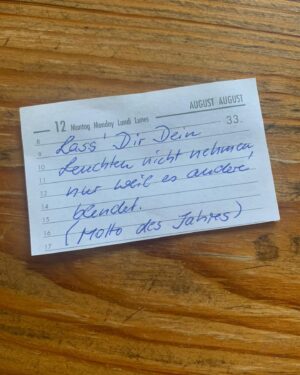 12 Montag Monday Lundi Lunes
AUGUST AUGUST
33.
8
9
10
11
12
13
14
15
16
17
Lass' Dir Dein
Leuchten nicht nehmen,
nur weil es andere
blendet.
(Motto des Jahres)